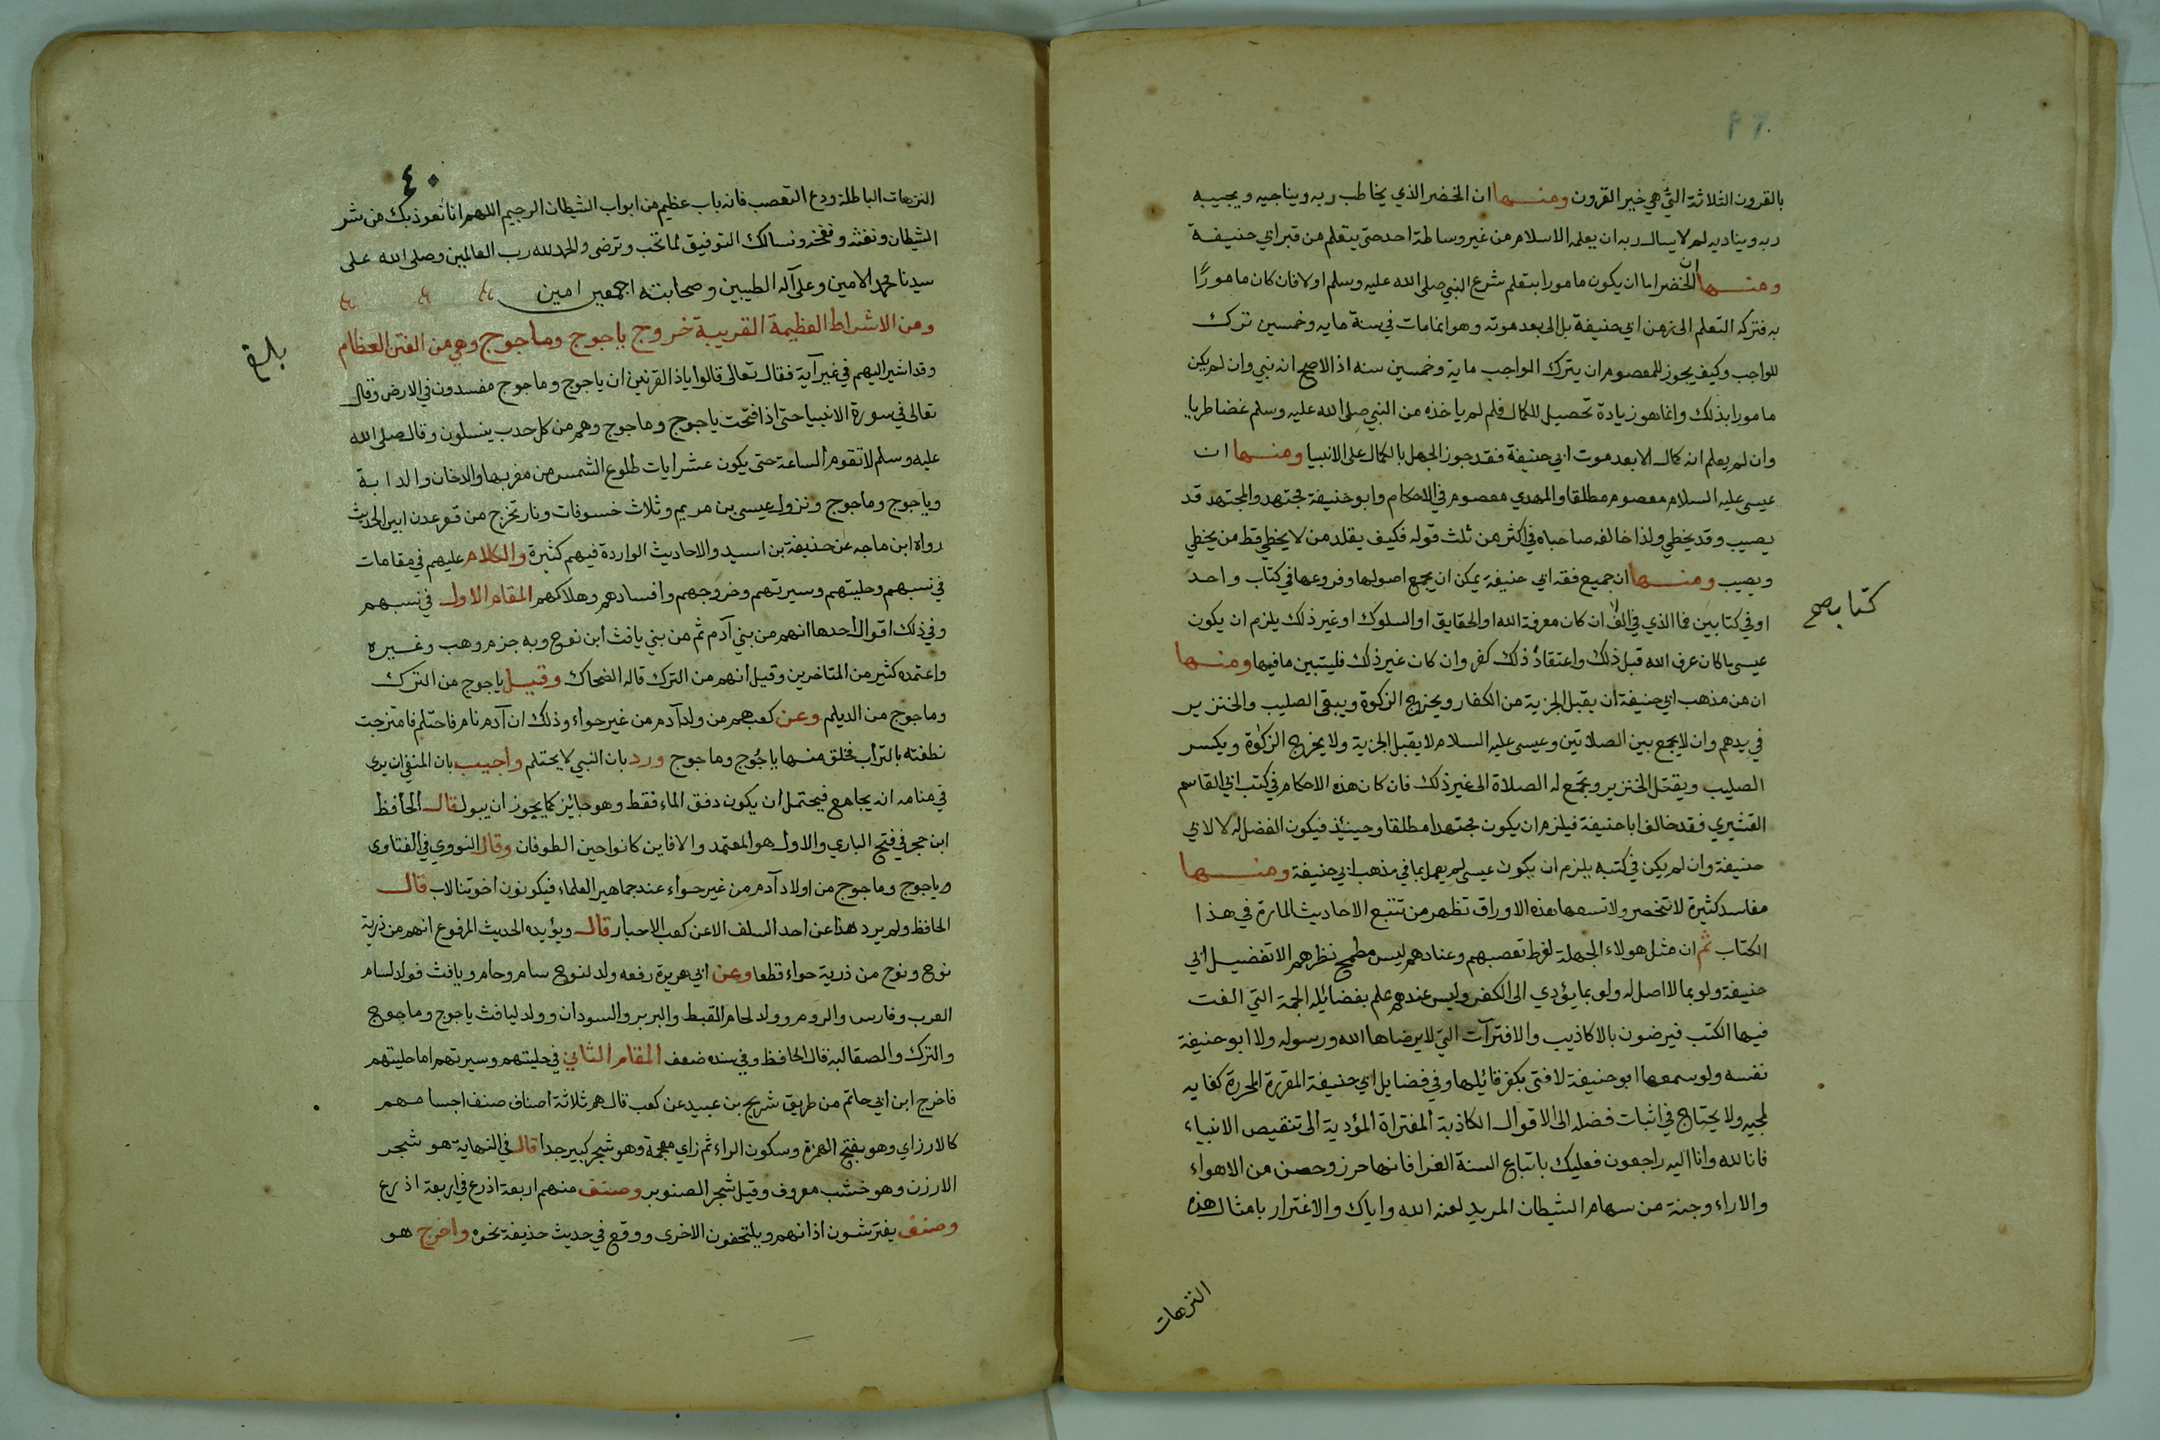 بالقرون الثلاثة التي هي خير القرون ومنها ان الخضر الذي يخاطب ربه ويناجيه ويجيبه
ربه ويناديه لم لا يسال ربه ان يعلمه الاسلام من غير وساطة احد حتى يتعلم من قبر ابي حنيفة
ومنها ان الخضر اما ان يكون مامورا بتعلم شرع النبي صلى الله عليه وسلم اولا فان كان مامورًا
به فتركه التعلم الى زمن ابي حنيفة بل الى بعد موته وهو انما مات في سنة مايه وخمسين ترك
للواجب وكيف يجوز للمعصوم ان يترك الواجب ماية وخمسين سنه اذ الاصح انه نبي وان لم يكن
مامورا بذلك وانما هو زيادة تحصيل للكمال فلم لم ياخذه من النبي صلى الله عليه وسلم غضا طريا
وان لم يعلم انه كمال الا بعد موت ابي حنيفة فقد جوز الجهل بالكمال على الانبيا ومنها ان
عيسى عليه السلام معصوم مطلقا والمهدي معصوم في الاحكام وابو حنيفة مجتهد والمجتهد قد
يصيب وقد يخطي ولذا خالفه صاحباه في اكثر من ثلث قوله فكيف يقلد من لا يخطي قط من يخطي
ويصيب ومنها ان جميع فقه ابي حنيفة يمكن ان يجمع اصولها وفروعها في كتاب واحد
او في كتابين فما الذي في الالف ان كان معرفة الله او الحقايق او السلوك او غير ذلك يلزم ان يكون
كتاب صح
عيسى ما كان عرف الله قبل ذلك واعتقاد ذلك كفر وان كان غير ذلك فليتبين ما فيها ومنها
ان من مذهب ابي حنيفة ان يقبل الجزية من الكفار ويخرج الزكوة ويبقى الصليب والخنزير
في يدهم وان لا يجمع بين الصلاتين وعيسى عليه السلام لا يقبل الجزية ولا يخرج الزكوة ويكسر
الصليب ويقتل الخنزير وتجمع له الصلاة الى غير ذلك فان كان هذه الاحكام في كتب ابي القاسم
القشيري فقد خالف ابا حنيفة فيلزم ان يكون مجتهدا مطلقا وحينئذ فيكون الفضل له لا لابي
حنيفة وان لم يكن في كتبه يلزم ان يكون عيسى لم يعمل بما في مذهب ابي حنيفة ومنها
مفاسد كثيرة لا تنحصر ولا تسعها هذه الاوراق تظهر من تتبع الاحاديث المارة في هذا
الكتاب ثم ان مثل هولاء الجهلة لفرط تعصبهم وعنادهم ليس مطمح نظرهم الا تفضيل ابي
حنيفة ولو بما لا اصل له ولو بما يؤدي الى الكفر وليس عندهم علم بفضائله الجمة التي الفت
فيها الكتب فيرضون بالاكاذيب والافترآت التي لا يرضاها الله ورسوله ولا ابو حنيفة
نفسه ولو سمعها ابو حنيفة لافتى بكفر قائلها وفي فضايل ابي حنيفة المقررة المحررة كفايه
لمحبيه ولا يحتاج في اثبات فضله الى الاقوال الكاذبة المفتراة المؤدية الى تنقيص الانبياء
فانا لله وانا اليه راجعون فعليك باتباع السنة الغرا فانها حرز وحصن من الاهواء
والاراء وجنة من سهام الشيطان المريد لعنه الله واياك والاغترار بامثال هذه
النزهات
٤٠
النزهات الباطلة ودع التعصب فانه باب عظيم من ابواب الشيطان الرجيم اللهم انا نعوذ بك من شر
الشيطان ونفثه ونفخه ونسالك التوفيق لما تحب وترضى والحمد لله رب العالمين وصلى الله على
سيدنا محمد الامين وعلى آله الطيبين وصحابته اجمعين امين
ومن الاشراط العظيمة القريبة خروج ياجوج وماجوج وهي من الفتن العظام
بلغ
وقد اشير اليهم في غير آية فقال تعالى قالوا ياذا القرنين ان ياجوج وماجوج مفسدون في الارض وقال
تعالى في سورة الانبيا حتى اذا فتحت ياجوج وماجوج وهم من كل حدب ينسلون وقال صلى الله
عليه وسلم لا تقوم الساعة حتى يكون عشر ايات طلوع الشمس من مغربها والدخان والدابة
وياجوج وماجوج ونزول عيسى بن مريم وثلاث خسوفات ونار تخرج من قعر عدن ابين الحديث
رواه ابن ماجه عن حذيفة بن اسيد والاحاديث الواردة فيهم كثيرة والكلام عليهم في مقامات
في نسبهم وحليتهم وسيرتهم وخروجهم وافسادهم وهلاكهم المقام الاول في نسبهم
وفي ذلك اقوال احدها انهم من بني آدم ثم من بني يافث ابن نوح وبه جزم وهب وغيره
واعتمده كثير من المتاخرين وقيل انهم من الترك قاله الضحاك وقيل ياجوج من الترك
وماجوج من الديلم وعن كعب هم من ولد آدم من غير حواء وذلك ان آدم نام فاحتلم فامتزجت
نطفته بالتراب فخلق منها ياجوج وماجوج ورد بان النبي لا يحتلم واجيب بان المنفي ان يرى
في منامه انه يجامع فيحتمل ان يكون دفق الماء فقط وهو جائز كما يجوز ان يبول قال الحافظ
ابن حجر في فتح الباري والاول هو المعتمد والا فاين كانوا حين الطوفان وقال النووي في الفتاوى
وياجوج وماجوج من اولاد آدم من غير حواء عند جماهير العلماء فيكونون اخوتنا لاب قال
الحافظ ولم يرد هذا عن احد السلف الا عن كعب الاحبار قال ويؤيده الحديث المرفوع انهم من ذرية
نوح ونوح من ذرية حواء قطعا وعن ابي هريرة رفعه ولد لنوح سام وحام ويافث فولد لسام
العرب وفارس والروم وولد لحام القبط والبربر والسودان وولد ليافث ياجوج وماجوج
والترك والصقالبه قال الحافظ وفي سنده ضعف المقام الثاني في حليتهم وسيرتهم اما حليتهم
فاخرج ابن ابي حاتم من طريق شريح بن عبيد عن كعب قال هم ثلاثة اصناف صنف اجسامهم
كالارز اي وهو بفتح الهمزة وسكون الراء ثم زاي معجمة وهو شجر كبير جدا قال في النهاية هو شجر
الارزن وهو خشب معروف وقيل شجر الصنوبر وصنف منهم اربعة اذرع في اربعة اذرع
وصنف يفترشون اذانهم ويلتحفون الاخرى ووقع في حديث حذيفة نحوه واخرج هو